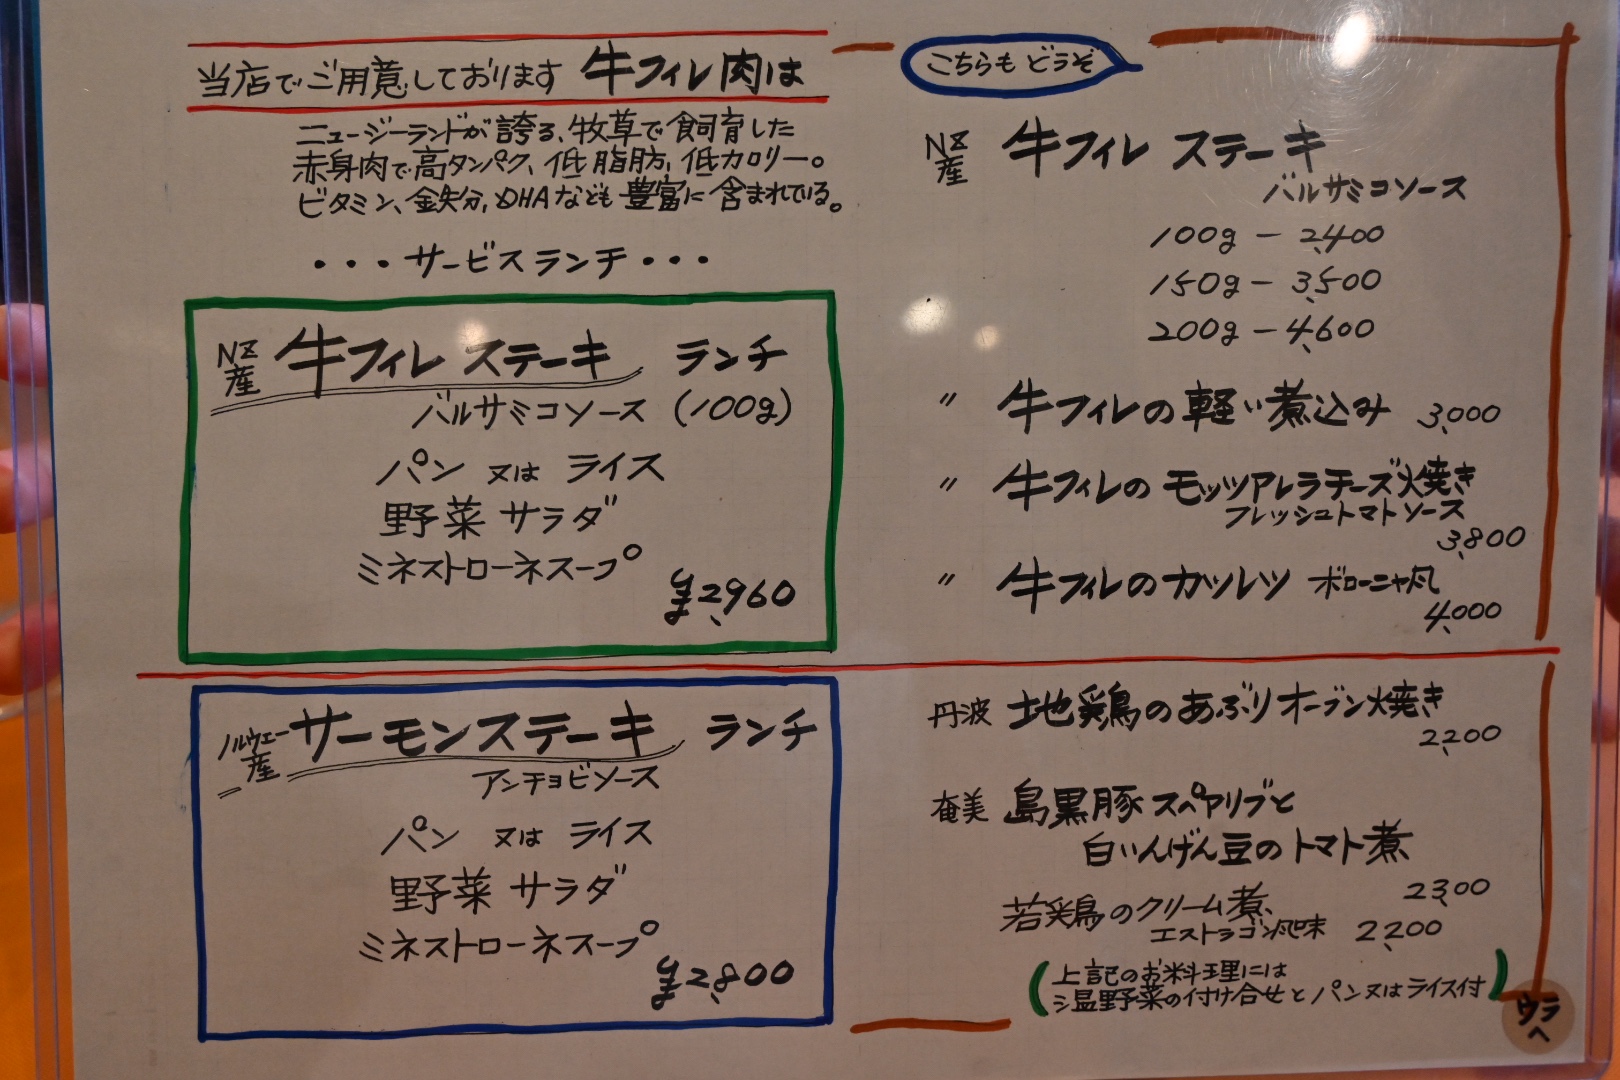 当店でご用意しております 牛フィレ肉は
ニュージーランドが誇る、牧草で飼育した
赤身肉で高タンパク、低脂肪、低カロリー。
ビタミン、金失分、DHAなども豊富に含まれている。
・・・サービスランチ・・・
NZ産 牛フィレ ステーキ ランチ
バルサミコソース (100g)
パン 又は ライス
野菜 サラダ
ミネストローネスープ
¥2,960
ノルウェー産 サーモンステーキ ランチ
アンチョビソース
パン 又は ライス
野菜 サラダ
ミネストローネスープ
¥2,800
こちらも どうぞ
NZ産 牛フィレ ステーキ
バルサミコソース
100g - 2,400
150g - 3,500
200g - 4,600
〃 牛フィレの 軽い煮込み 3,000
〃 牛フィレの モッツアレラチーズ焼き
フレッシュトマトソース
3,800
〃 牛フィレのカツレツ ボローニャ風
4,000
丹波 地鶏のあぶりオーブン焼き
2,200
奄美 島黒豚スペアリブと
白いんげん豆のトマト煮
2,300
若鶏のクリーム煮、
エストラゴン風味 2,200
(上記のお料理には
温野菜の付け合せとパン又はライス付)
ウラへ